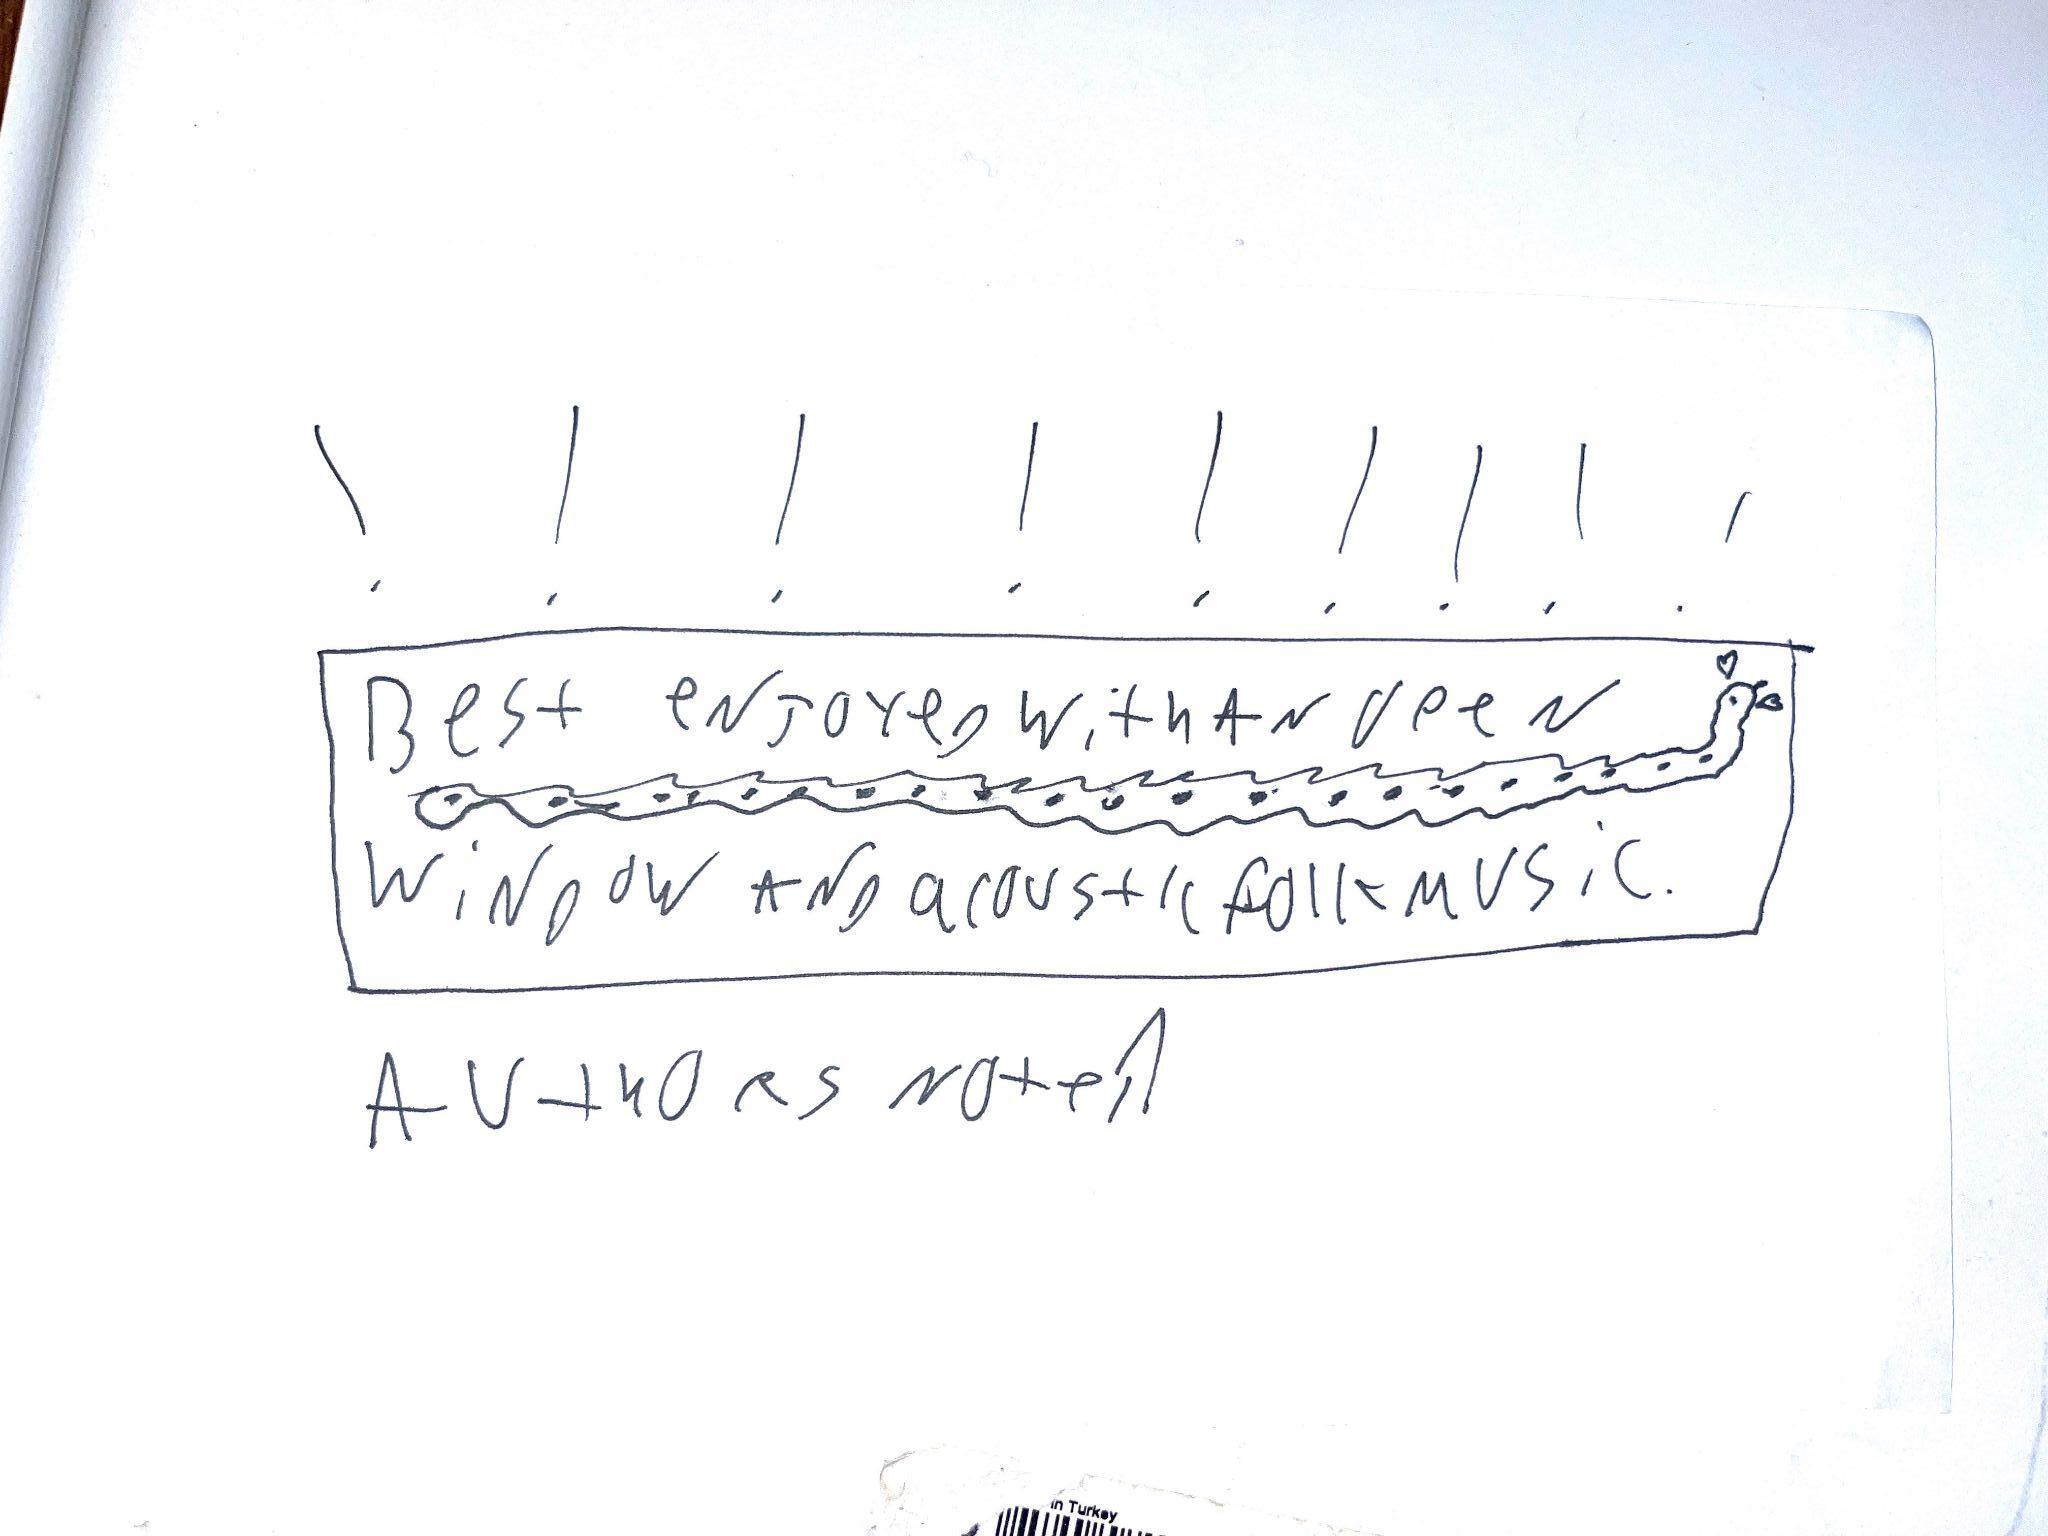 ! ! ! ! ! ! ! ! !
Best enjoyed with an open
window and acoustic folk music.
Authors note!
in Turkey